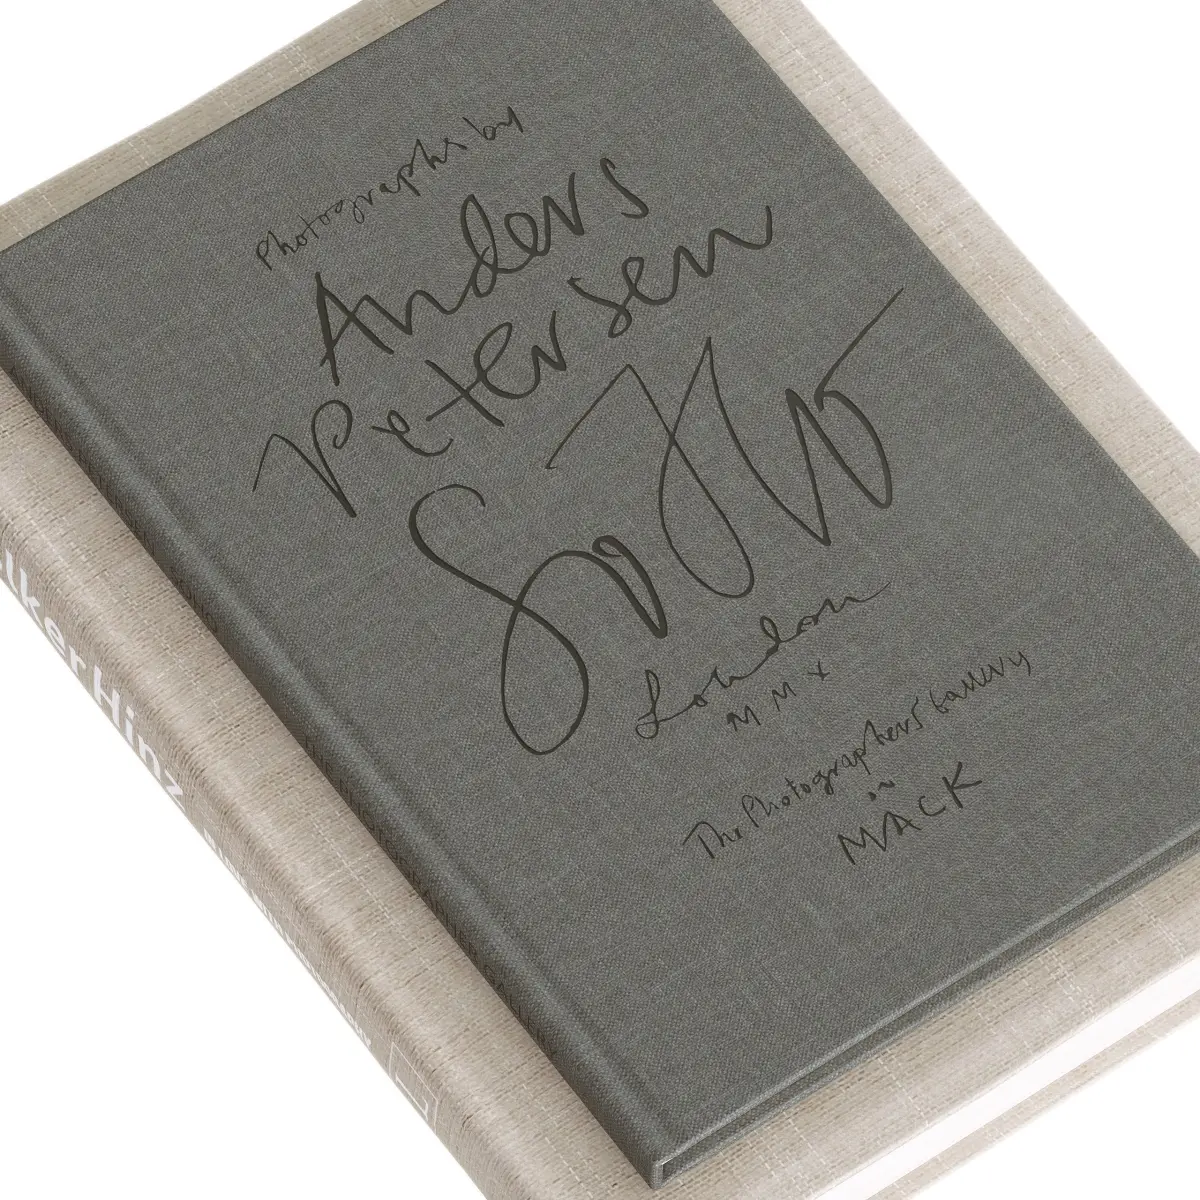 Photographs by
Anders
Petersen
SoHo
London
MMX
The Photographers' Gallery
MACK
lker Hinz